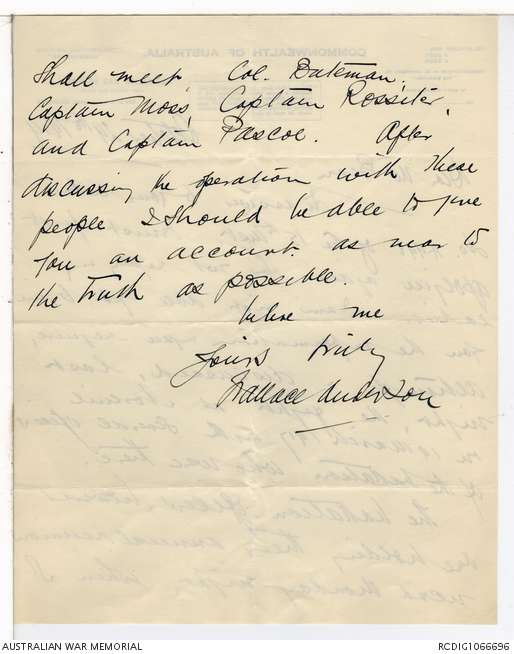 Shall meet, Col. Bateman,
Captain Moss, Captain Rossiter,
and Captain Pascoe. After
discussing the operation with these
people I should be able to give
you an account as near to
the truth as possible.
believe me
Yours truly
Wallace Anderson
AUSTRALIAN WAR MEMORIAL
RCDIG1066696